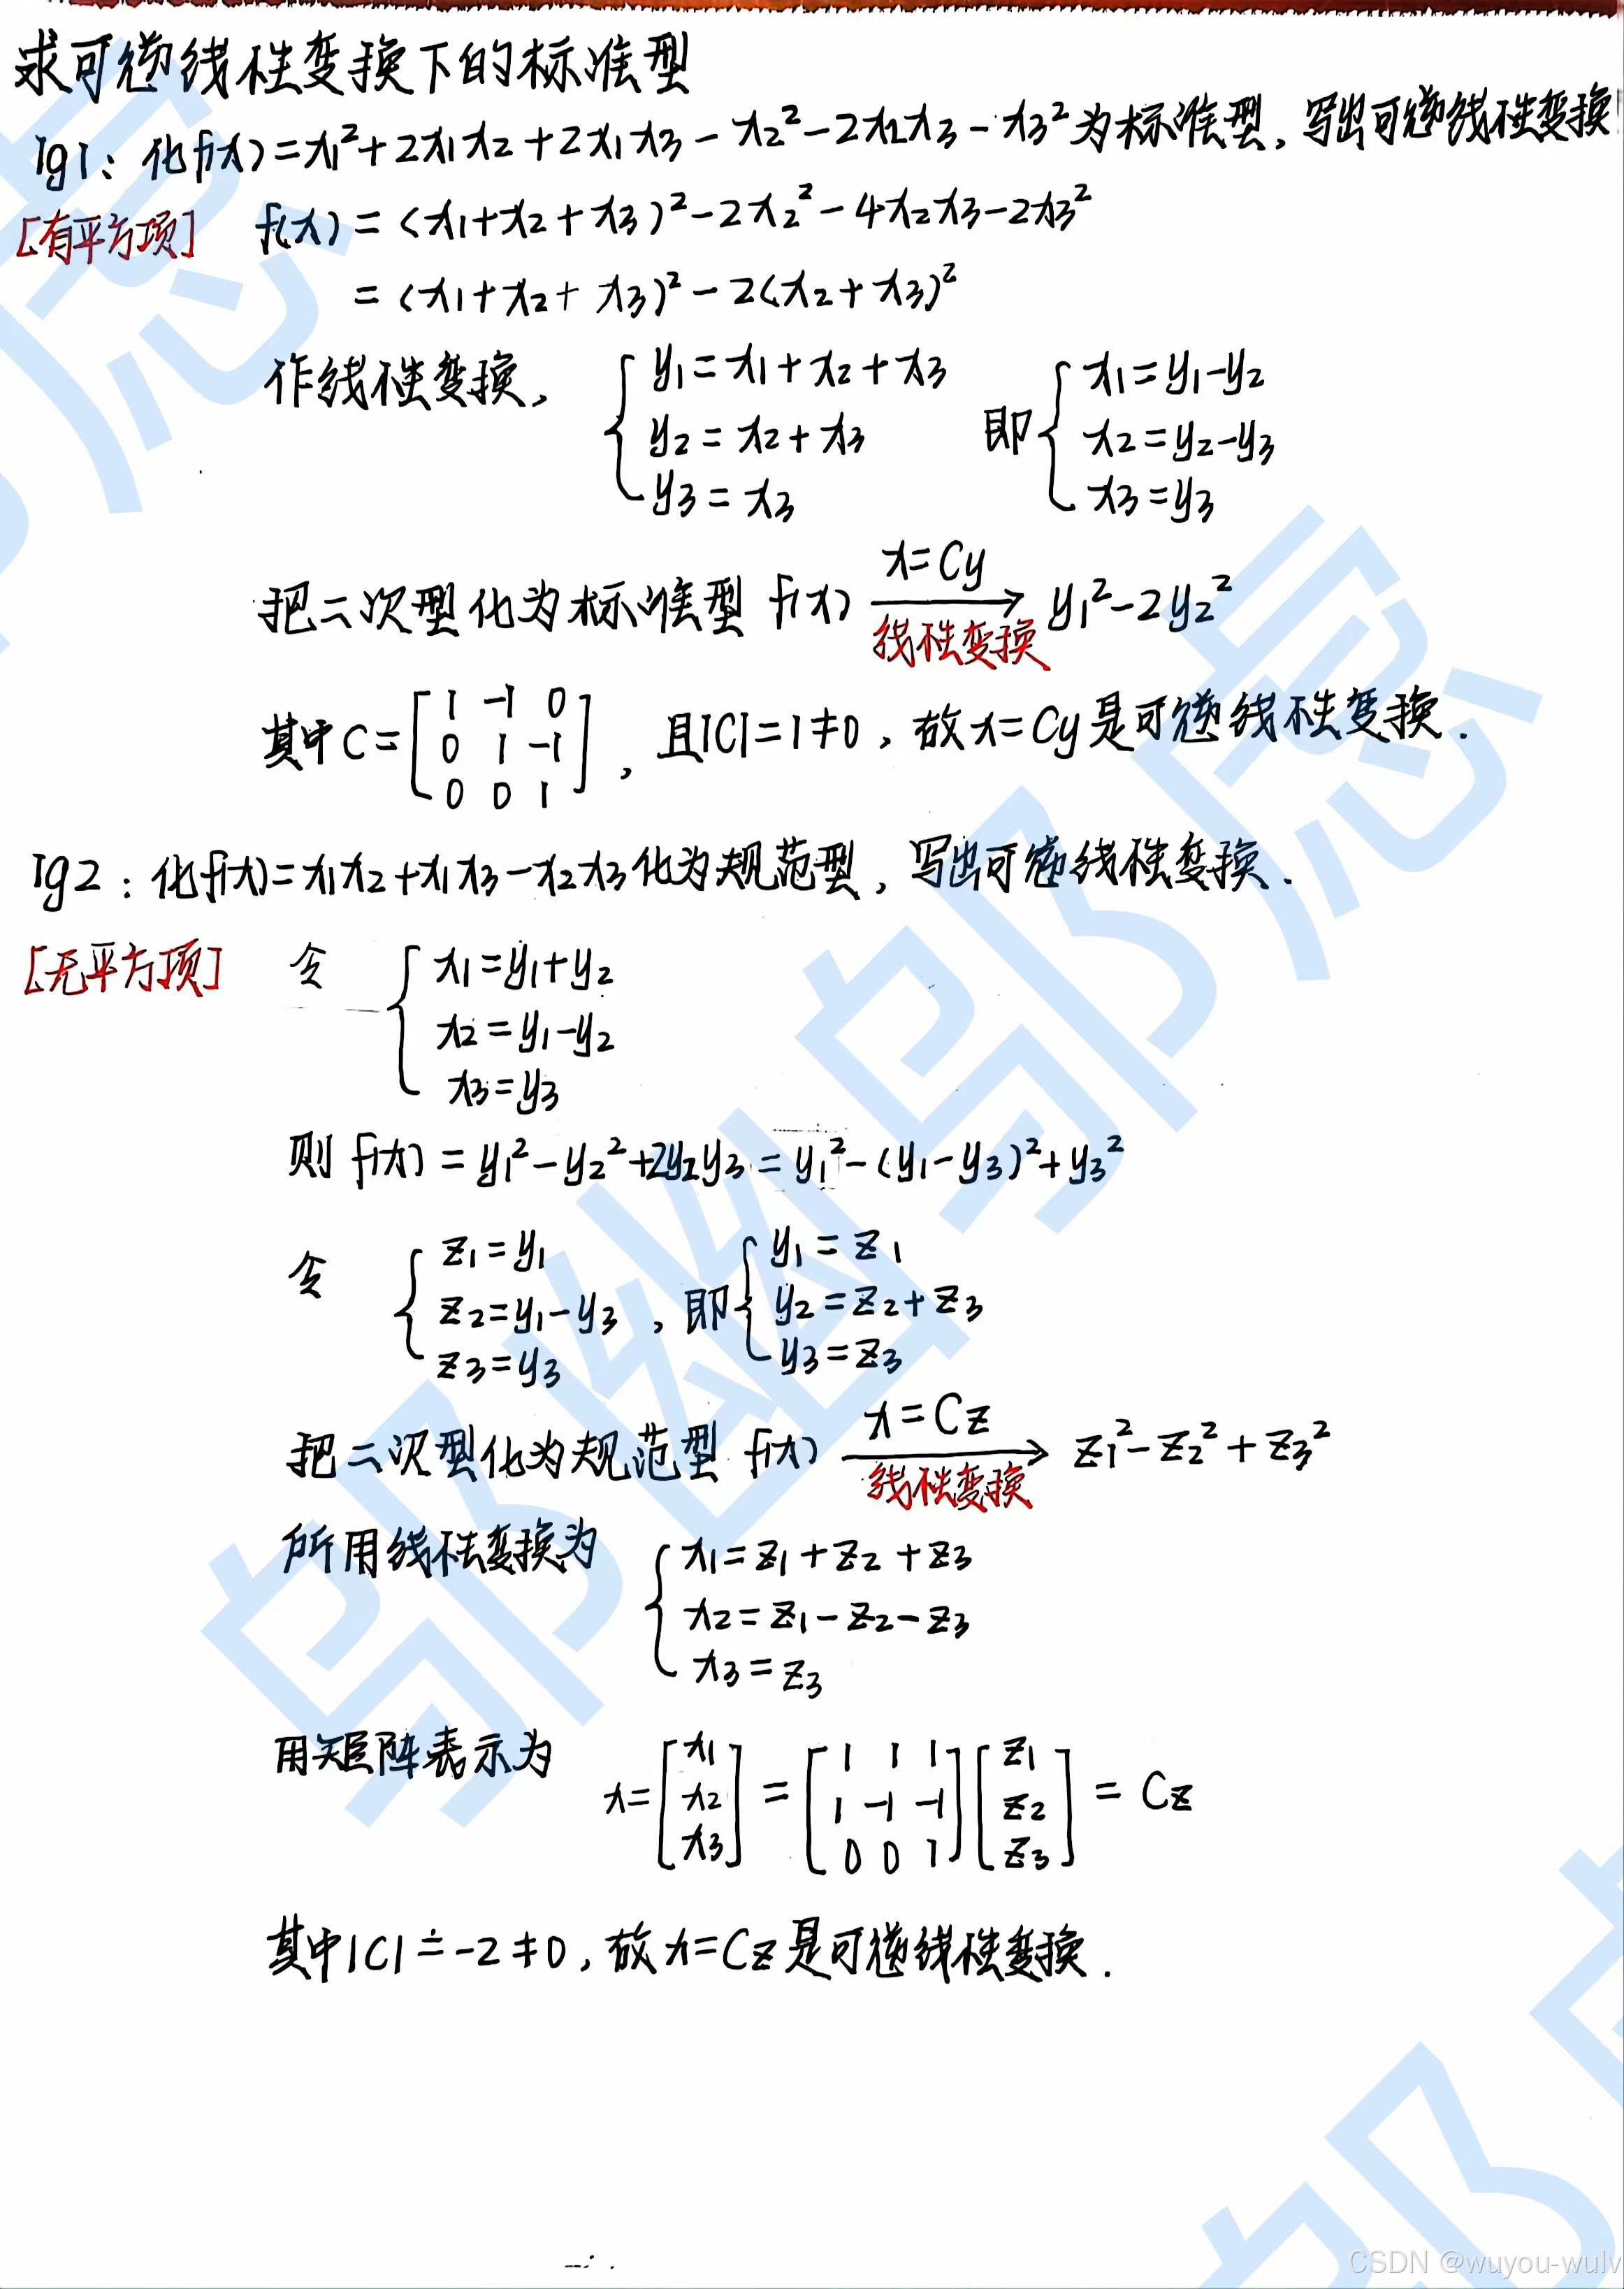 求可逆线性变换下的标准型
eg1：化f(x)=x₁²+2x₁x₂+2x₁x₃-x₂²-2x₂x₃-x₃²为标准型，写出可逆线性变换
[有平方项] f(x)=(x₁+x₂+x₃)²-2x₂²-4x₂x₃-2x₃²
=(x₁+x₂+x₃)²-2(x₂+x₃)²
作线性变换, { y₁=x₁+x₂+x₃ 即 { x₁=y₁-y₂
y₂=x₂+x₃ x₂=y₂-y₃
y₃=x₃ x₃=y₃
x=Cy
把二次型化为标准型 f(x) → y₁²-2y₂²
线性变换
其中C=[1 -1 0
0 1 -1
0 0 1], 且|C|=1≠0, 故x=Cy是可逆线性变换.
eg2：化f(x)=x₁x₂+x₁x₃-x₂x₃化为规范型，写出可逆线性变换.
[无平方项] 令 { x₁=y₁+y₂
x₂=y₁-y₂
x₃=y₃
则 f(x)=y₁²-y₂²+2y₂y₃=y₁²-(y₁-y₃)²+y₃²
令 { z₁=y₁ , 即 { y₁=z₁
z₂=y₁-y₃ y₂=z₂+z₃
z₃=y₃ y₃=z₃
x=Cz
把二次型化为规范型 f(x) → z₁²-z₂²+z₃²
线性变换
所用线性变换为 { x₁=z₁+z₂+z₃
x₂=z₁-z₂-z₃
x₃=z₃
用矩阵表示为 x=[x₁ x₂ x₃] = [1 1 1
1 -1 -1
0 0 1] [z₁ z₂ z₃] = Cz
其中|C|=-2≠0, 故x=Cz是可逆线性变换.
CSDN @wuyou-wulv